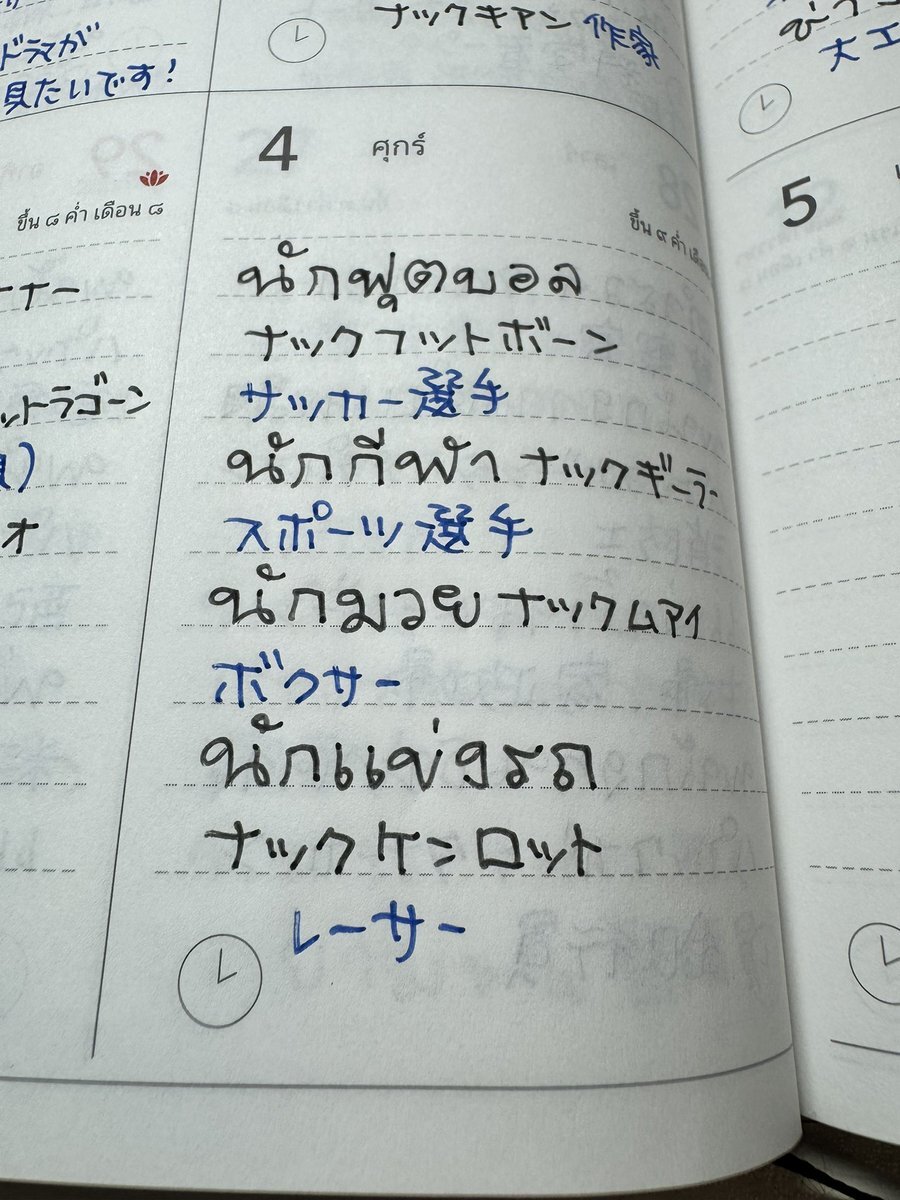 ドラマが
見たいです!
ナックキアン 作家
大工
4 ศุกร์
ขึ้น ๘ ค่ำ เดือน ๘
ขึ้น ๙ ค่ำ
5
นักฟุตบอล
ナックフットボーン
サッカー選手
นักกีฬา ナックギーラー
スポーツ選手
นักมวย ナックムアイ
ボクサー
นักแข่งรถ
ナックケンロット
レーサー
ーナー
ットラゴーン
オ